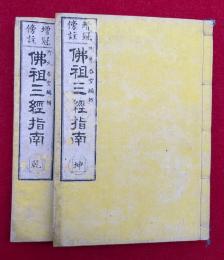 增冠
傍註
佛祖三經指南
坤
增冠
傍註
佛祖三經指南
乾